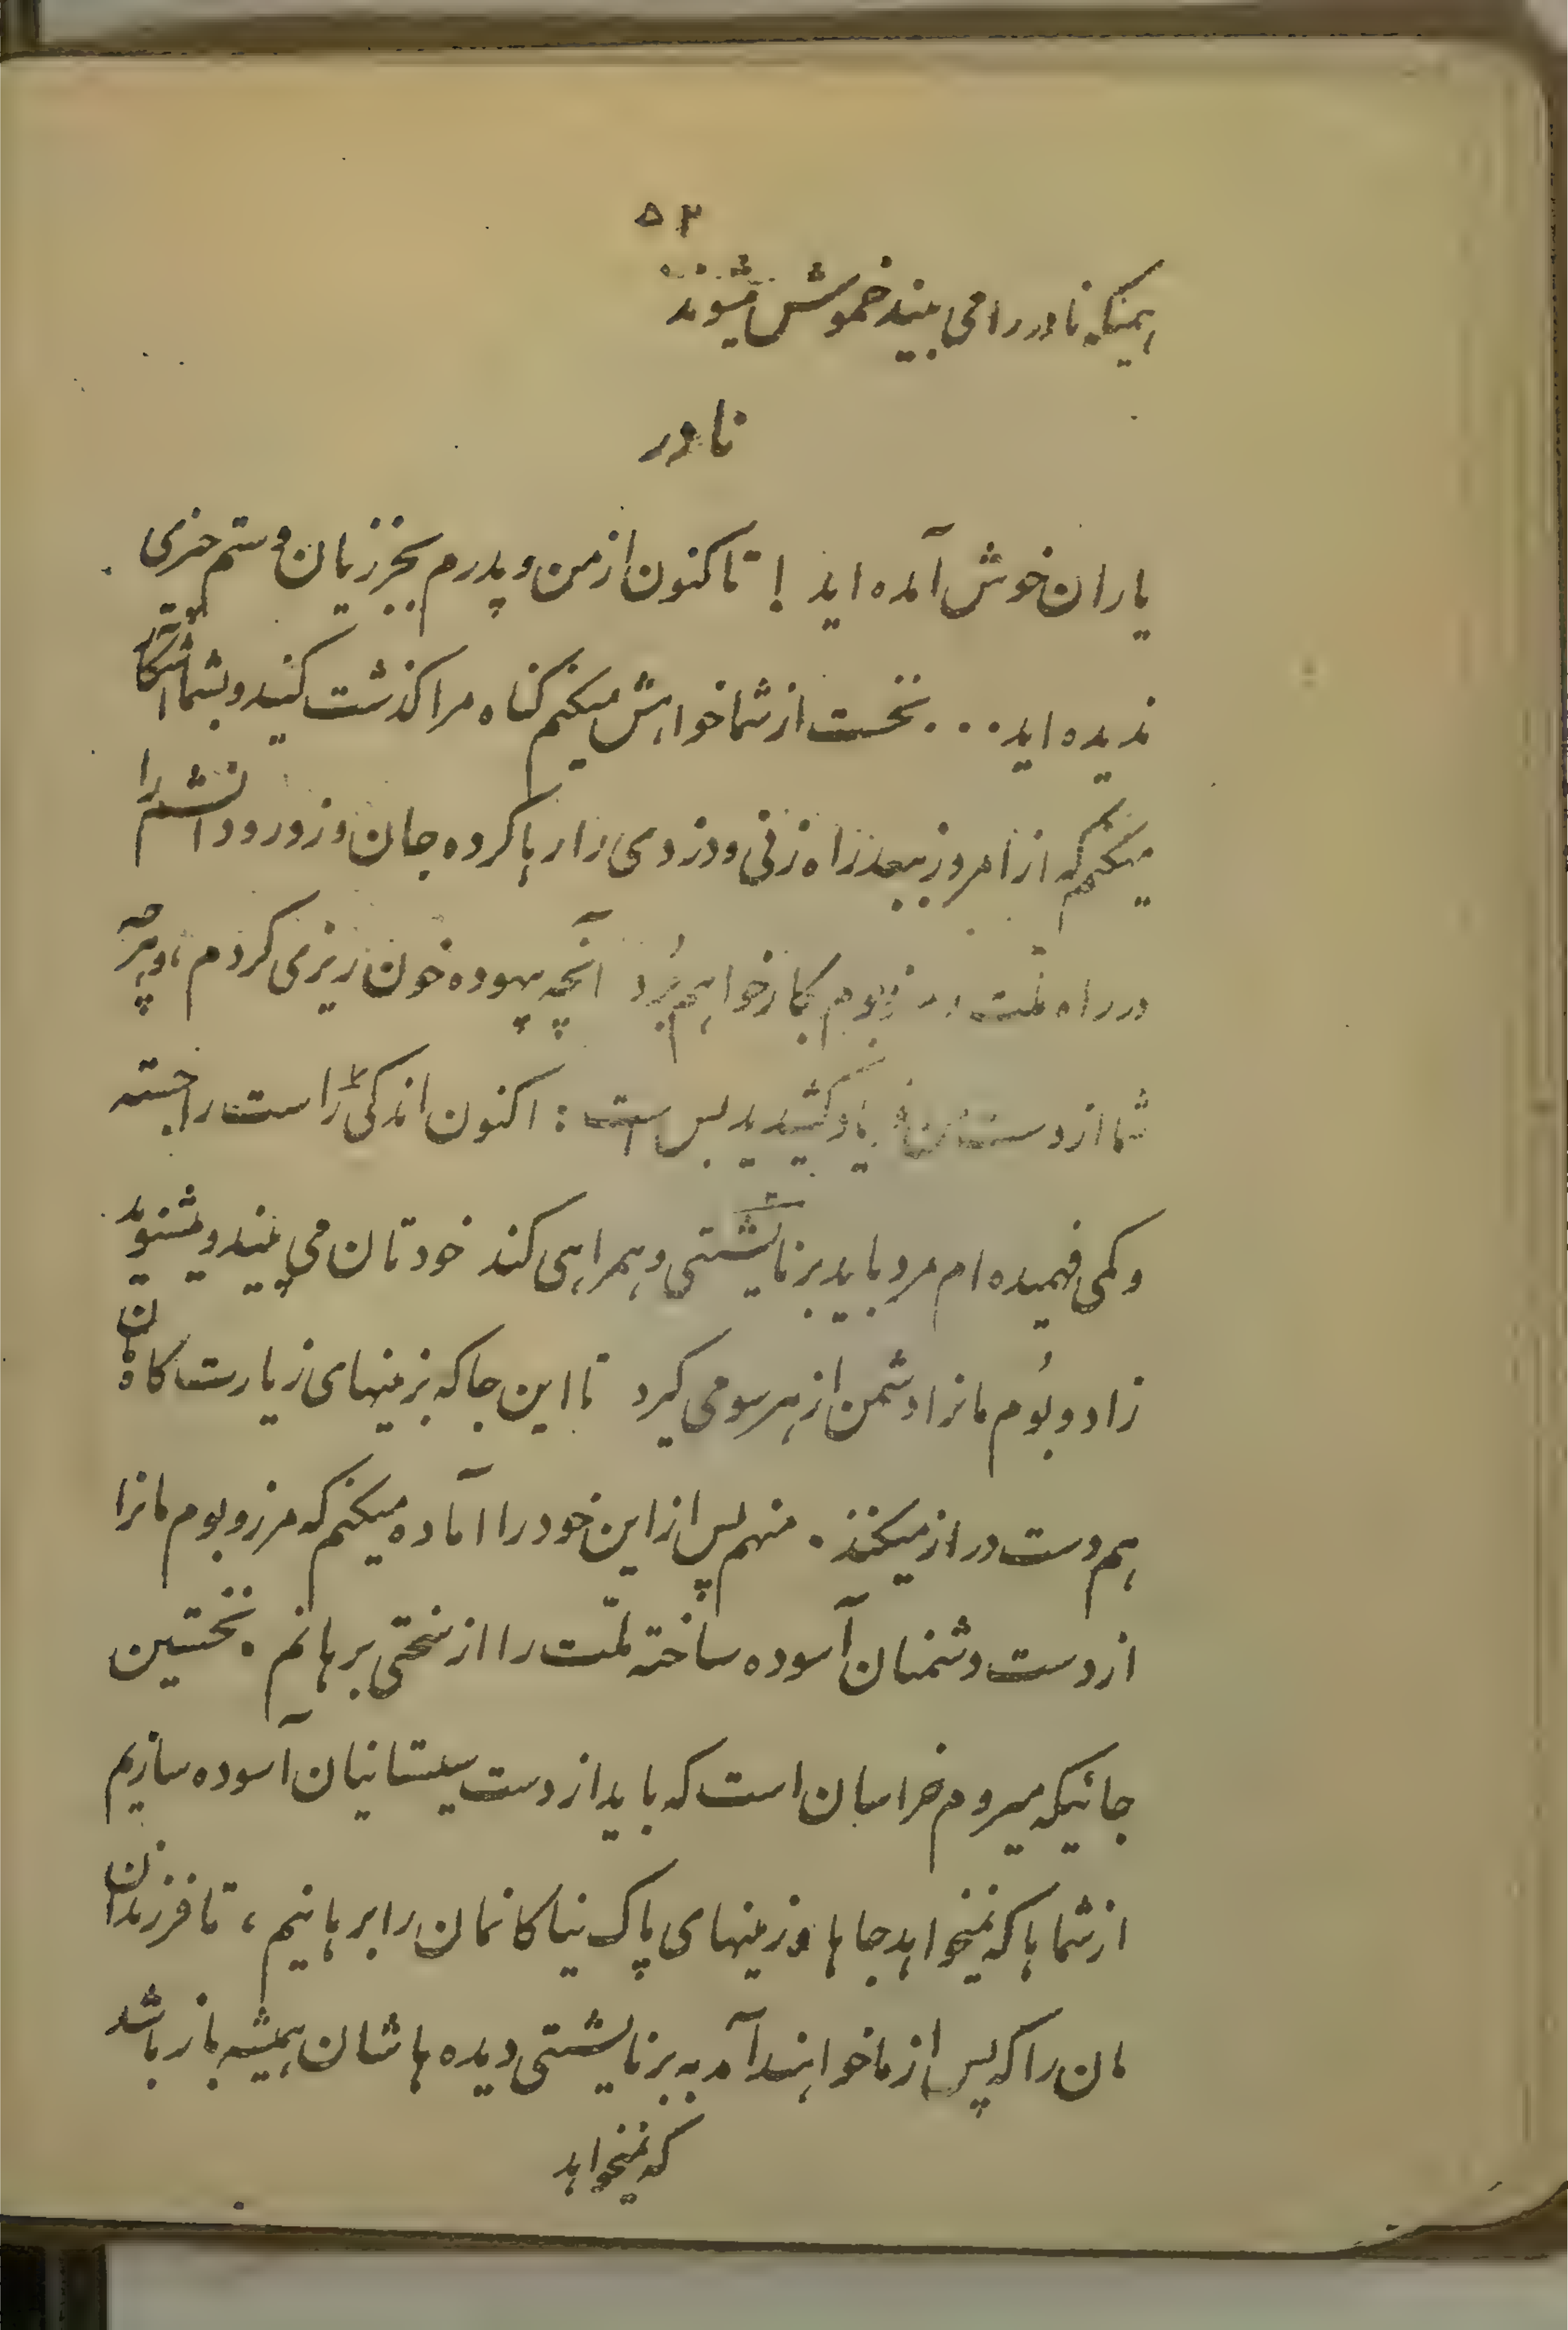 ۵۲
همینکه نادر را می بیند خموش میشوند
نادر
یاران خوش آمده اید ! تاکنون از من و پدرم بجز زیان و ستم چیزی
ندیده اید... نخست از شما خواهش میکنم گناه مرا گذشت کنید و بشما آشکار
میکنم که از امروز ببعد راه زنی و دزدی را رها کرده جان و زور و دانشم را
در راه ملّت و بوم بکار خواهم بُرد آنچه بیهوده خون ریزی کردم، و هر چه
شما از دستمان فریاد کشیدید بس است : اکنون اندکی راه راست را جسته
و کمی فهمیده ام مرد باید بر نایشتی و همراهی کند خودتان می بینید و میشنوید
زاد و بُوم مانرا دشمن از هر سو می گیرد تا این جا که بزمینهای زیارت گاهمان
هم دست دراز میکنند. منهم پس از این خود را آماده میکنم که مرز و بوم مانرا
از دست دشمنان آسوده ساخته ملّت را از سختی برهانم. نخستین
جائیکه میروم خراسان است که باید از دست سیستانیان آسوده سازیم
از شماها که نمیخواهد جاها و زمینهای پاک نیاکانمان را برهانیم، تا فرزندان
مان را که پس از ما خواهند آمد به بر نایشتی دیده هاشان همیشه باز باشد
که نمیخواهد